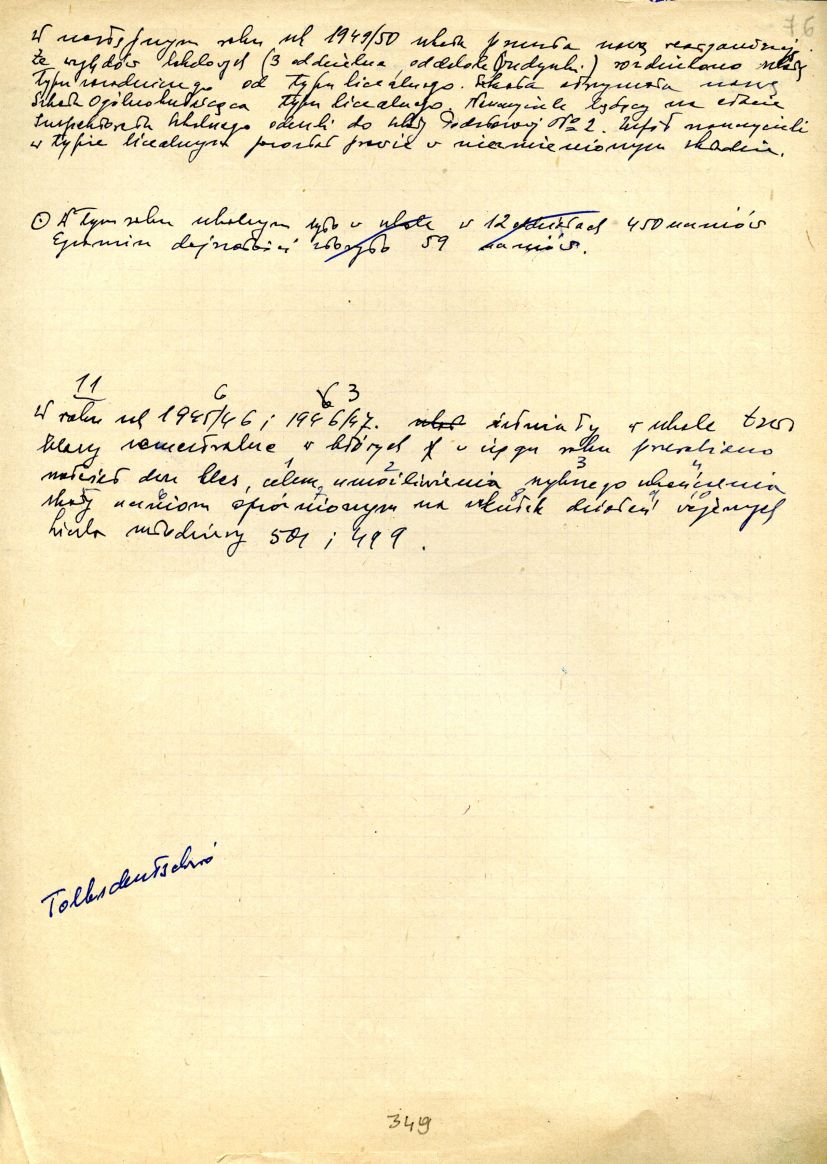 76
W następnym roku szk 1949/50 szkoła przeszła nową reorganizację.
Ze względów lokalowych (3 oddzielne oddalone budynki.) rozdzielono szkołę
typu zasadniczego od typu licealnego. Szkoła otrzymała nazwę
Szkoła Ogólnokształcąca typu licealnego. Nauczyciele będący na etacie
Inspektoratu Szkolnego odeszli do Szkoły Podstawowej № 2. Zespół nauczycieli
w typie licealnym pozostał prawie w niezmienionym składzie.
W tym roku szkolnym było w szkole w 12 oddziałach 450 uczniów
Egzamin dojrzałości złożyło 59 uczniów.
11
6 6 3
W roku szk 1945/46 i 1946/47. szkoł istniały w szkole trzy
klasy semestralne w których w ciągu roku przerabiano
materiał dwu klas, celem umożliwienia szybszego ukończenia
szkoły uczniom opóźnionym na skutek działań wojennych
Liczba młodzieży 501 i 499.
349